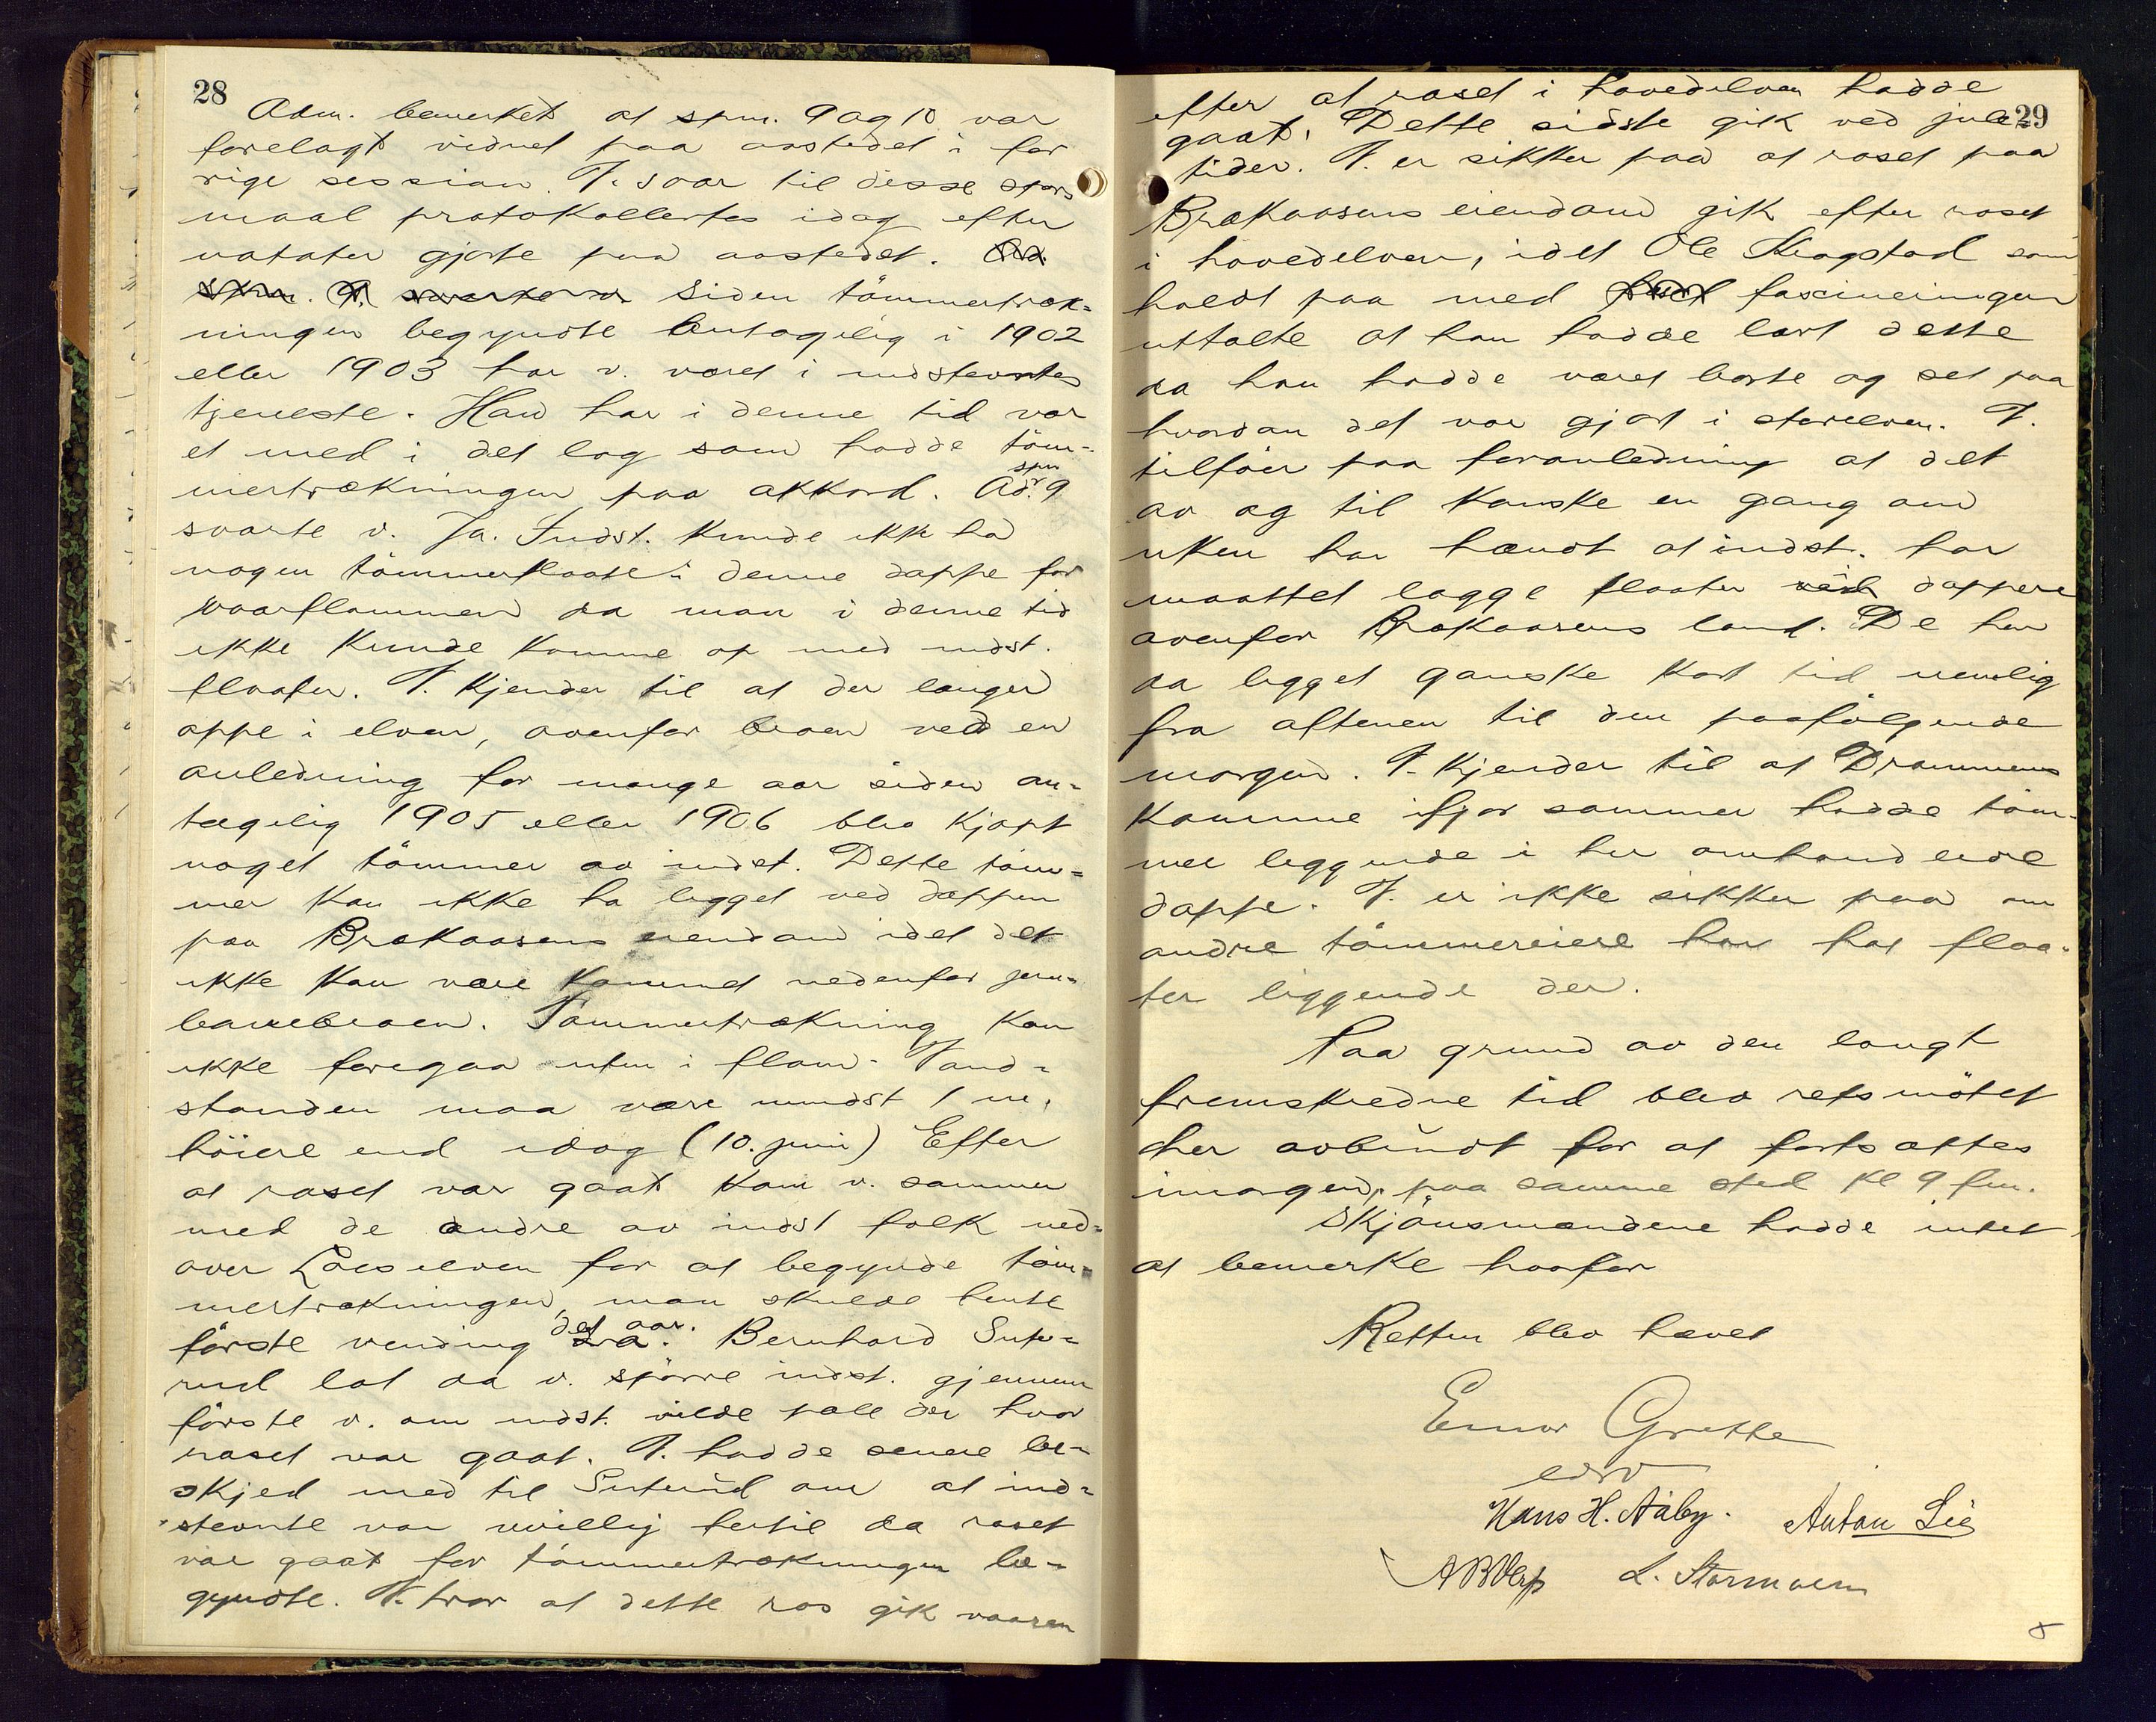 28
Adm. bemerket at spm. 9 og 10 var
forelagt vidnet paa aastedet i for
rige session. V. svar til disse spørs
maal protokollertes idag efter
notater gjorte paa aastedet.
Siden tömmertræk-
ningen begyndte antagelig i 1902
eller 1903 har v. været i indstevntes
tjeneste. Han har i denne tid vær
et med i det lag som hadde töm-
mertrækningen paa akkord. Ad. spm 9
svarte v. Ja. Indst. kunde ikke ha
nogen tömmerflaate i denne dappe for
vaarflommen da man i denne tid
ikke kunde komme op med indst.
flaater. V. kjender til at der længer
oppe i elven, ovenfor broen ved en
anledning for mange aar siden an-
tagelig 1905 eller 1906 blev kjøpt
noget tömmer av indst. Dette töm-
mer kan ikke ha ligget ved dappen
paa Brækaasens eiendom idet det
ikke kan være kommet nedenfor jern-
banebroen. Tömmertrækning kan
ikke foregaa uten i flom. Vand-
standen maa være mindst 1 m.
höiere end idag (10. juni) Efter
at raset var gaat kom v. sammen
med de andre av indst folk ned-
over Loeselven for at begynde töm-
mertrækningen, man skulde hente
förste vending det aar. Bernhard Sute-
rud lot da v. spörre indst. gjennem
förste v. om indst. vilde pæle der hvor
raset var gaat. V. hadde senere be-
skjed med til Suterud om at ind-
stevnte var uvillig hertil da raset
var gaat for tömmertrækningen be-
gyndte. V. tror at dette ras gik vaaren
29
efter at raset i hovedelven hadde
gaat. Dette sidste gik ved jule-
tider. V. er sikker paa at raset paa
Brækaasens eiendom gik efter raset
i hovedelven, idet Ole Kragstad som
holdt paa med fascineringen
uttalte at han hadde lært dette
da han hadde været borte og set paa
hvordan det var gjort i storelven. V.
tilföier paa foranledning at det
av og til kanske en gang om
uken har hændt at indst. har
maattet lægge flaater ved dappen
ovenfor Brækaasens land. De har
da ligget ganske kort tid nemlig
fra aftenen til den paafölgende
morgen. V. kjender til at Drammens
kommune ifjor sommer hadde töm-
mer liggende i her omhandlede
dappe. V. er ikke sikker paa om
andre tömmereiere har hat flaa-
ter liggende der.
Paa grund av den langt
fremskredne tid blev retsmötet
her avbrudt for at fortsættes
imorgen paa samme sted kl 9 fm.
Skjönsmændene hadde intet
at bemerke hvorfor
Retten blev hævet
Einar Grette
edv
Hans H. Aaby. Anton Lie
L. Stormoen